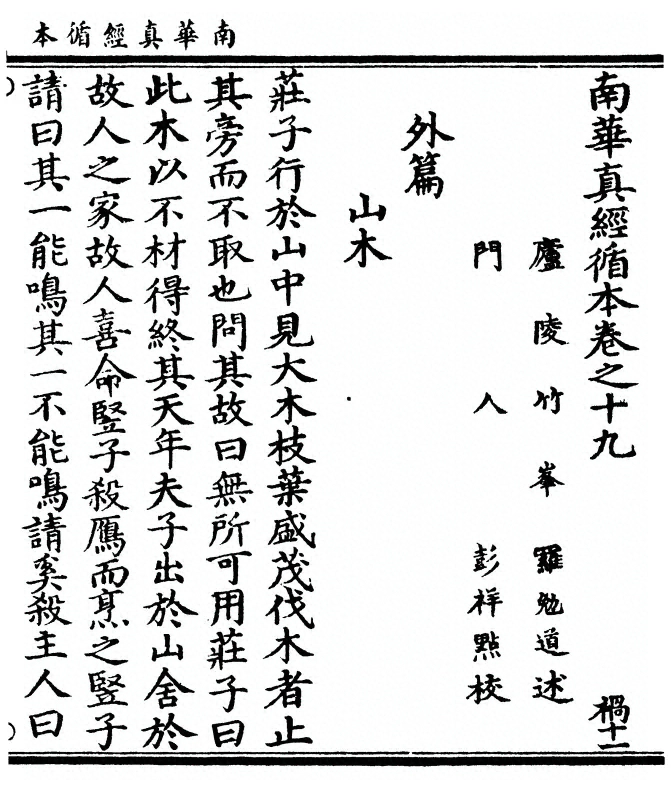 南華真經循本
南華真經循本卷之十九 禍十一
廬陵竹峯羅勉道述
門人彭祥點校
外篇
山木
莊子行於山中見大木枝葉盛茂伐木者止
其旁而不取也問其故曰無所可用莊子曰
此木以不材得終其天年夫子出於山舍於
故人之家故人喜命豎子殺鴈而烹之豎子
請曰其一能鳴其一不能鳴請奚殺主人曰